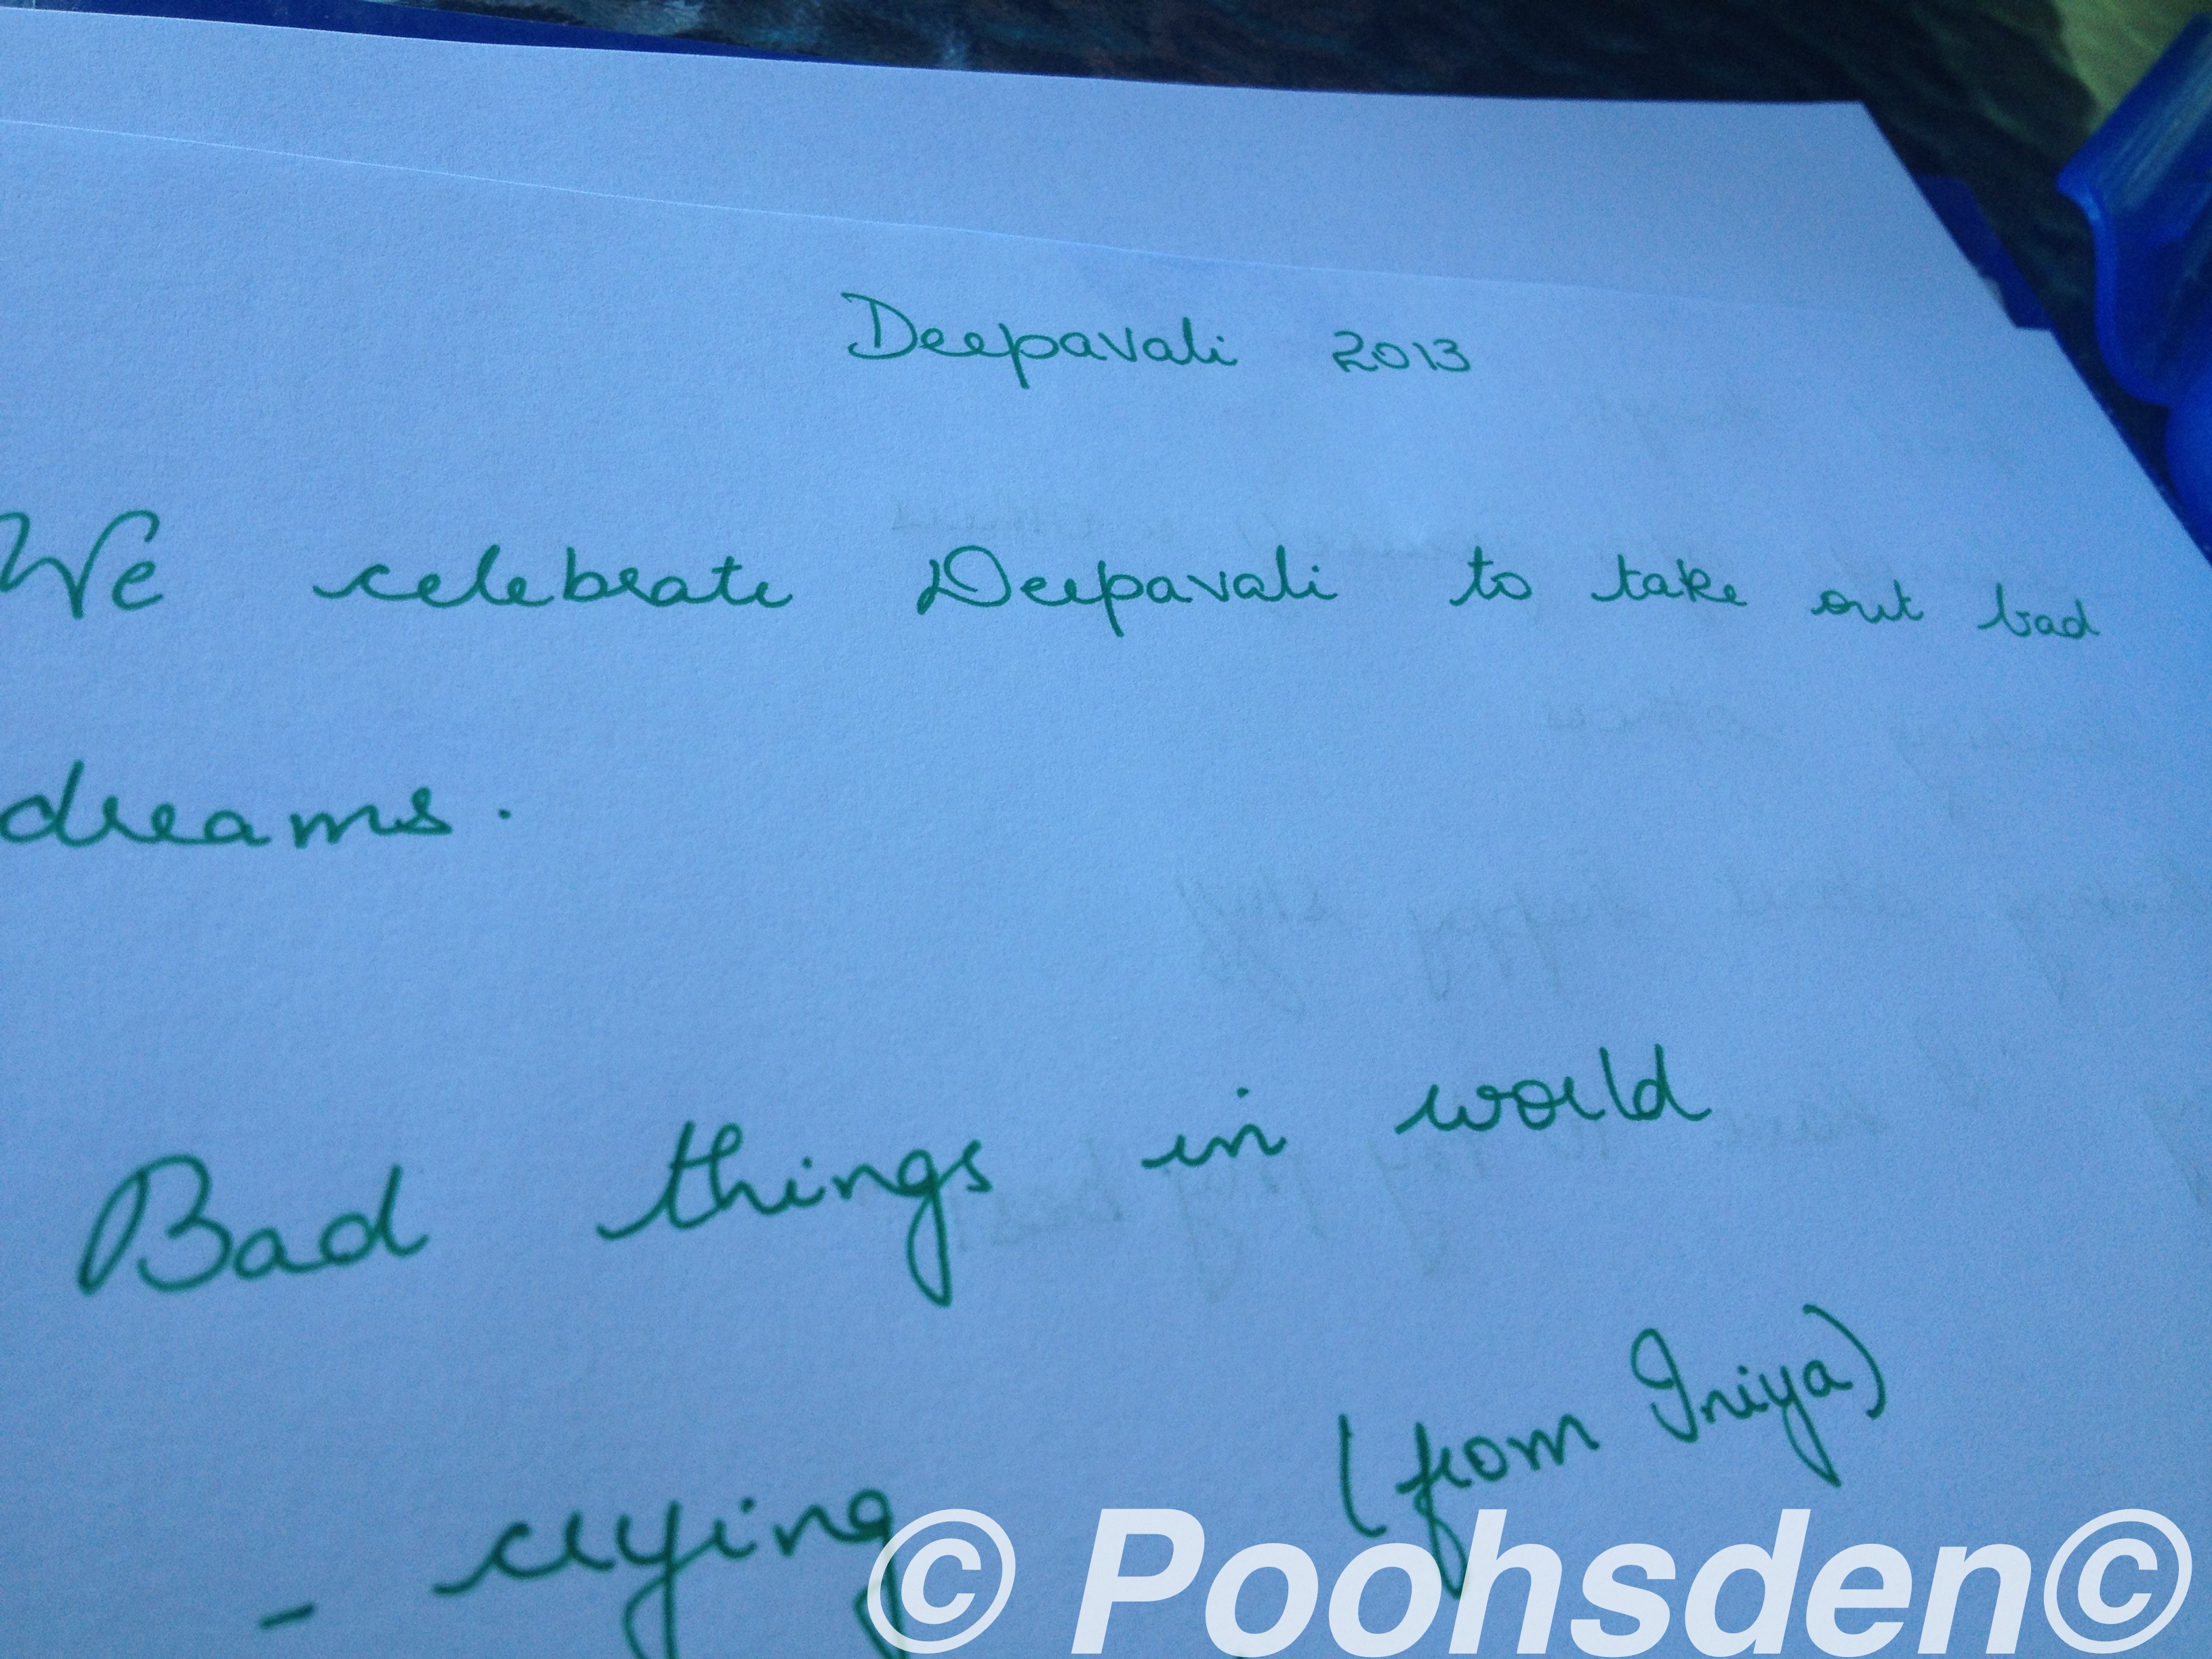 Deepavali 2013
We celebrate Deepavali to take out bad
dreams.
Bad things in world
(from Iniya)
- crying
© Poohsden©